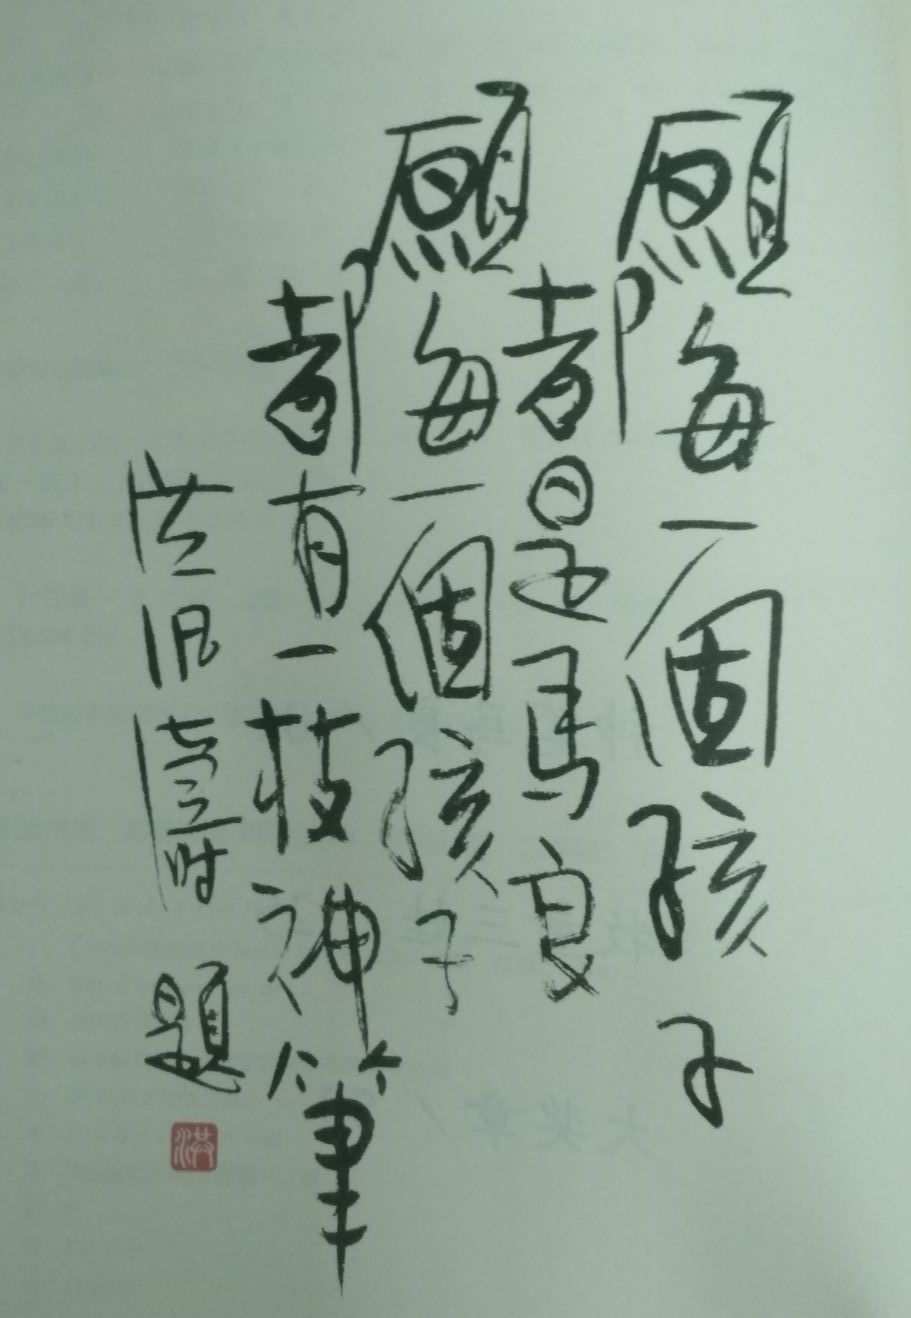 願每一個孩子
都是馬良
願每一個孩子
都有一枝神筆
洪汛濤題
洪